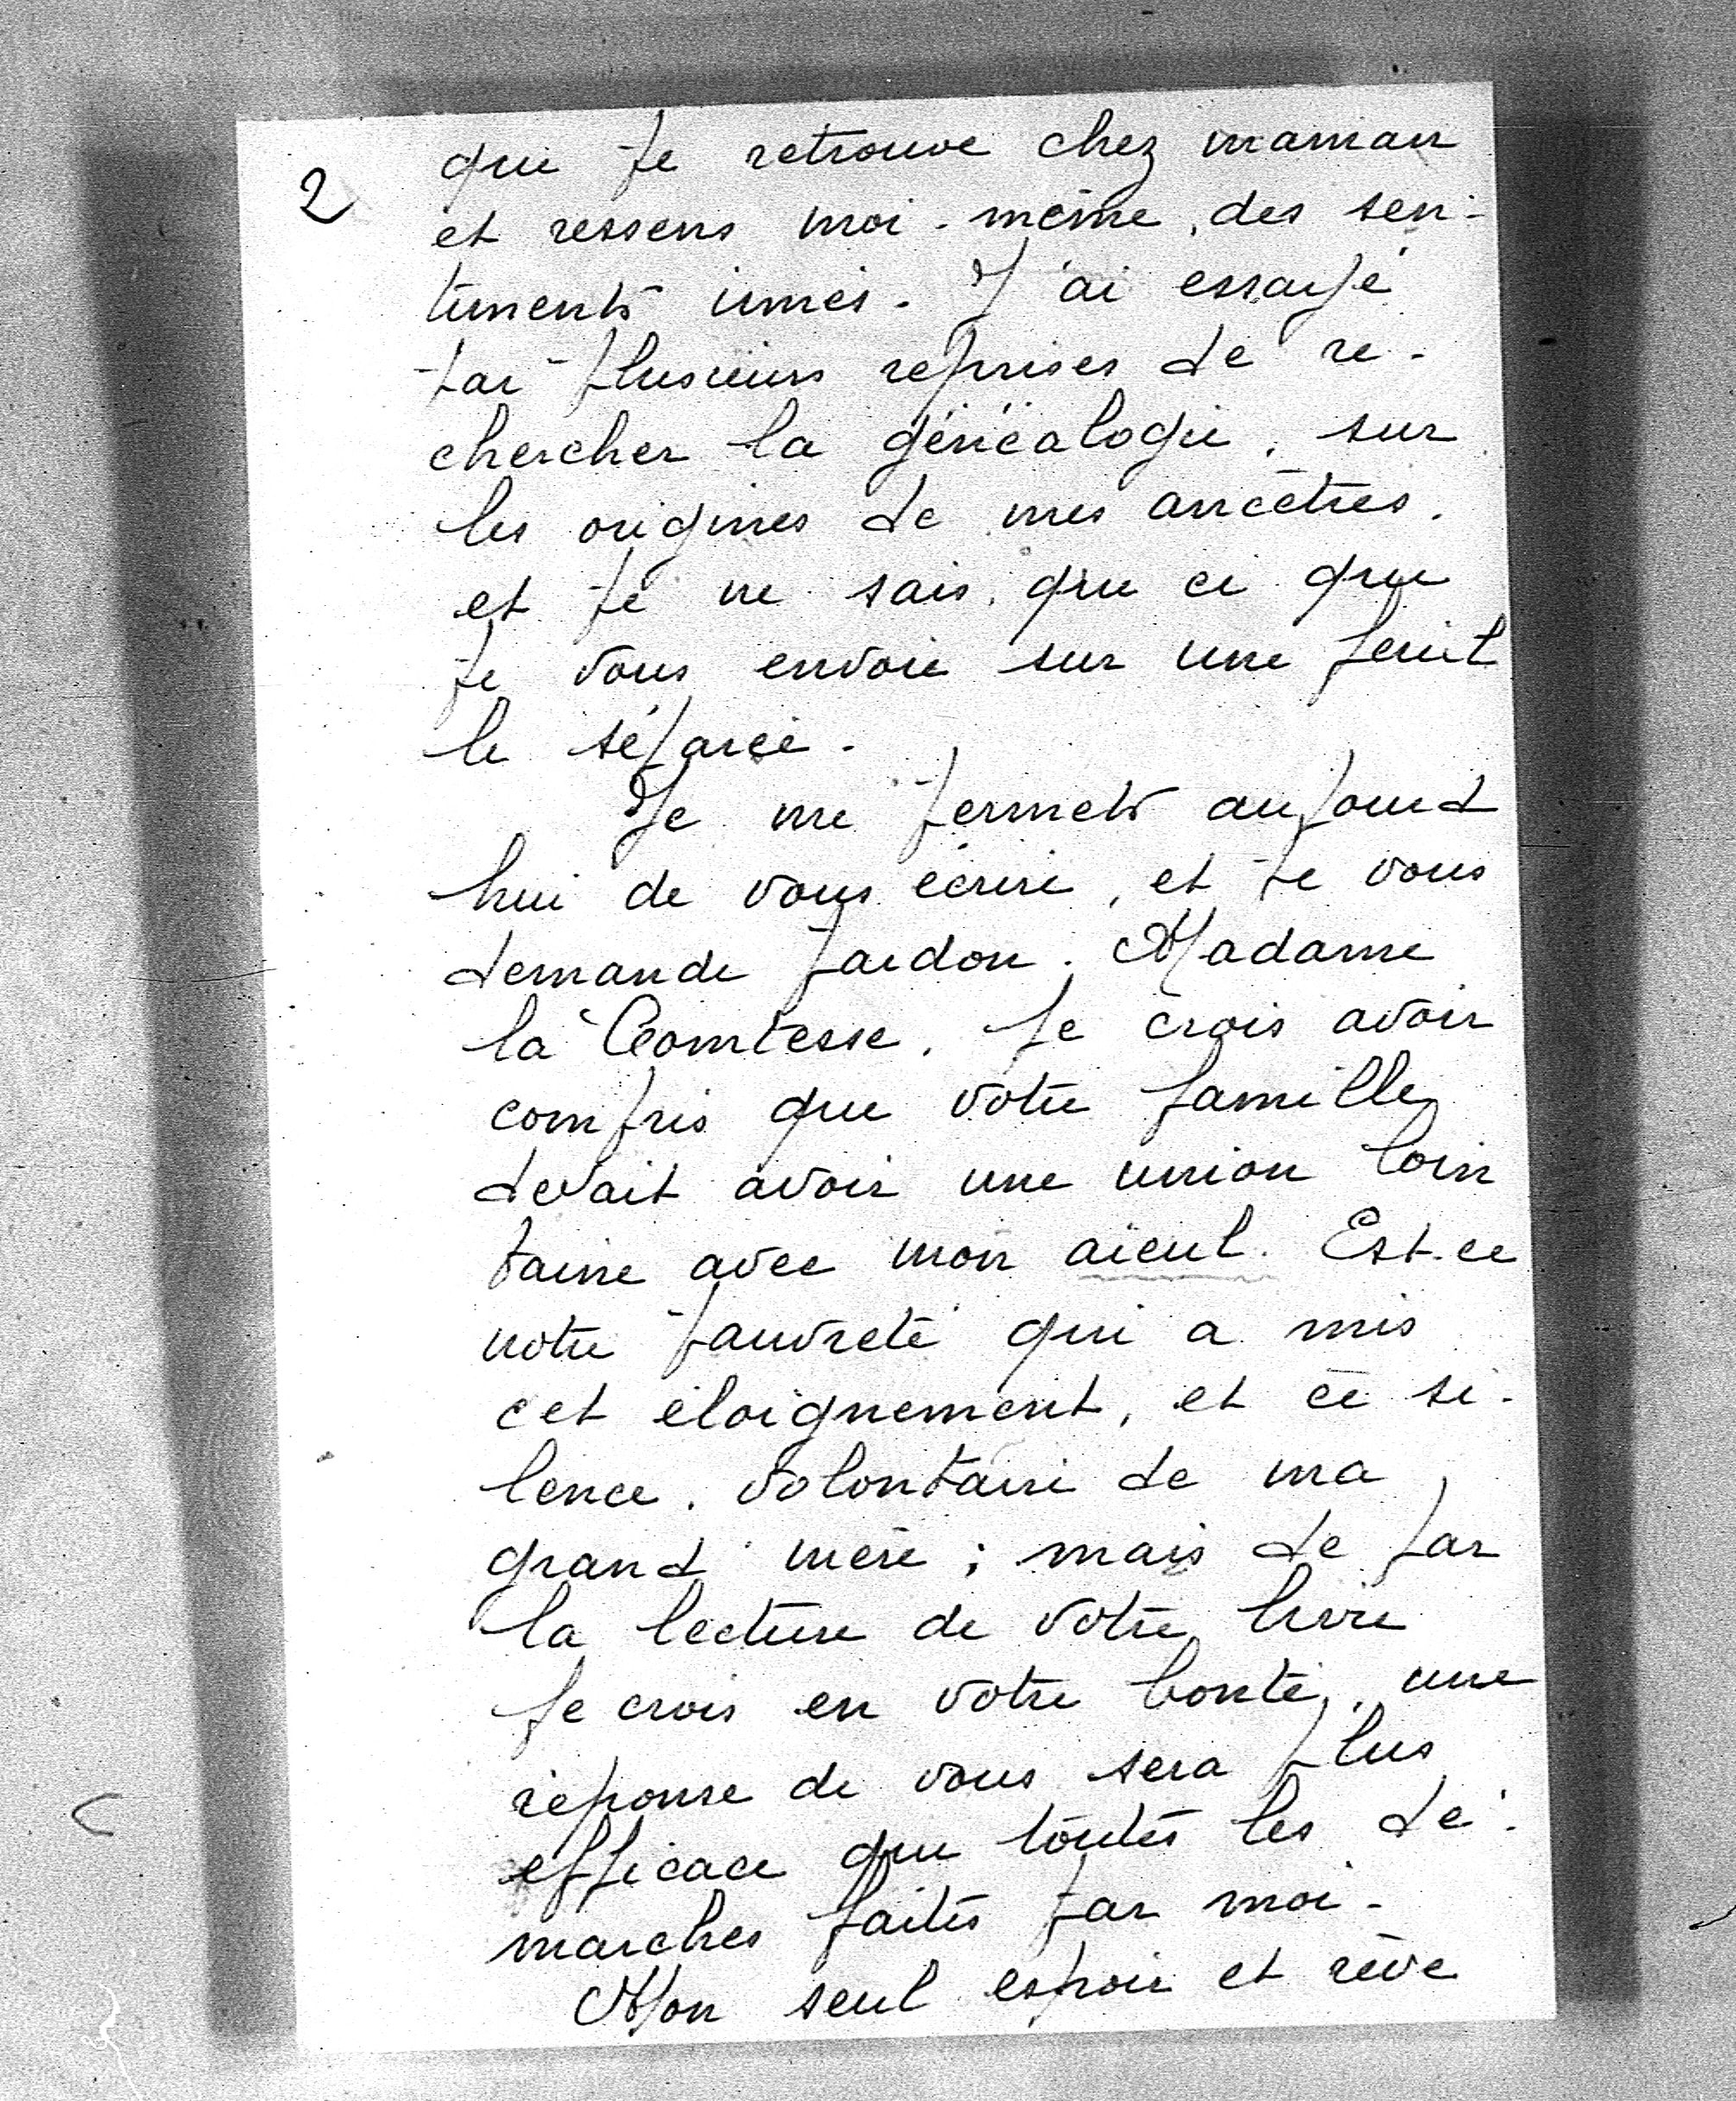 2
que je retrouve chez maman
et ressens moi-même, des sen-
timents innés. J'ai essayé
par plusieurs reprises de re-
chercher la généalogie, sur
les origines de mes ancêtres.
et je ne sais, que ce que
je vous envoie sur une feuil
le séparée.
Je me permets aujourd
hui de vous écrire, et je vous
demande pardon. Madame
la Comtesse. Je crois avoir
compris que votre famille
devait avoir une union loin
taine avec mon aïeul. Est-ce
notre pauvreté qui a mis
cet éloignement, et ce si-
lence. volontaire de ma
grand'mère ; mais de par
la lecture de votre livre
je crois en votre bonté, une
réponse de vous sera plus
efficace que toutes les dé-
marches faites par moi.
Mon seul espoir et rêve